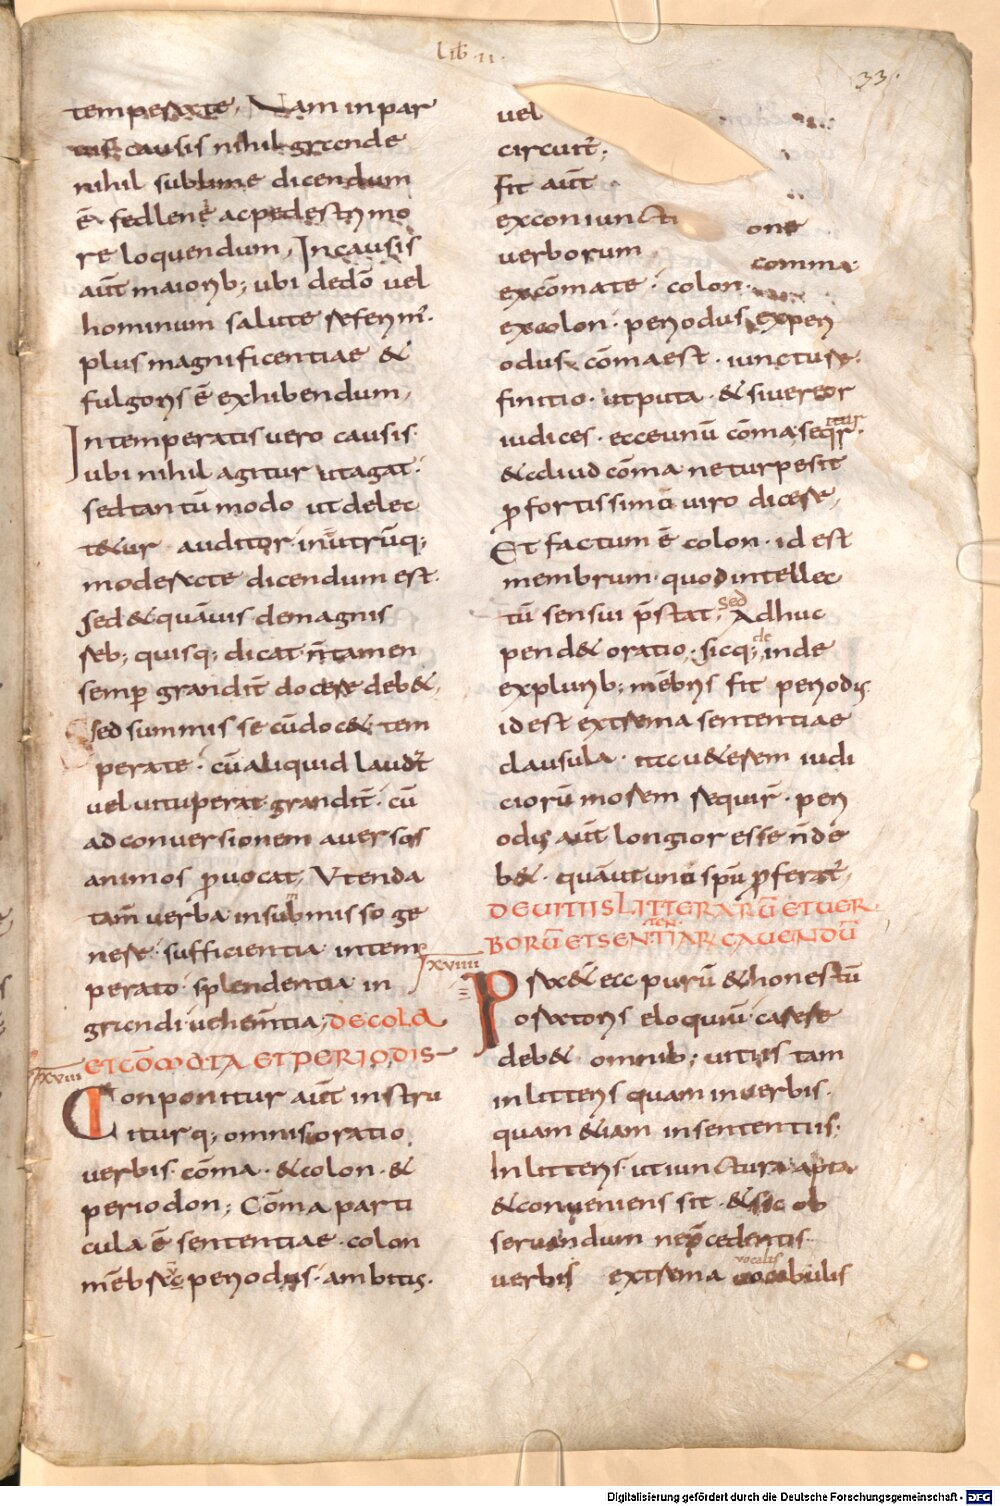 Lib · II ·
33 ·
temperate, Nam inpar
causis nihil grande
nihil sublime dicendum
ē · sed lene ac pedestri mo
re loquendum, In causis
aūt maiorib; ubi dedō uel
hominum salute referim̄ ·
plus magnificentiae &
fulgoris ē exhibendum,
Intemperatis uero causis
ubi nihil agitur ut agat ·
sed tantū modo ut delec
t&ur auditor inūtrūq;
moderate dicendum est ·
sed & quāuis demagnis
reb; quisq; dicat n̄ tamen
semp grandit̄ docere deb&,
sed summisse cūdoc& tem
perate · cū aliquid laudat̄
uel uituperat grandit̄ · cū
ad conuersionem auersos
animos puocat, Utenda
tam̄ uerba insubmisso ge
nere · sufficientia intem
perato splendentia in
grandi uehem̄tia, DE COLA
ET COMMATA ET PERIODIS
XVIII
Conponitur aūt instru
iturq; omnis oratio
uerbis cōma · & colon · &
periodon; Cōma parti
cula ē sententiae · colon
mēbrū periodus · ambitus ·
uel
circuit̄;
Fit aūt
exconiuncti one
uerborum comma
excōmate · colon ·
excolon · periodus, experi
odus cōma est · iuncturae
finitio · utputa · & siuereor
iudices · ecce unū cōma seqr̄ ·
itur
& aliud cōma neturpe sit
p fortissimo uiro dicere,
Et factum ē colon · id est
membrum quod intellec
tū sensui p̄stat, sed Adhuc
pend& oratio, sicq; de inde
explurib; mēbris fit periodus
id est extrema sententiae
clausula · ita u&erem iudi
ciorū morem requir̄ · peri
odus aūt longior esse n̄ de
b& · quāut uno spū p ferat̄,
DE UITIIS LITTERARŪ ET UER
BORŪ ET SENTENTIARŪ CAUENDŪ
XVIIII
Pra&ea purū & honestū
oratoris eloquiū carere
deb& omnib; uitiis tam
in litteris quam in uerbis ·
quam &iam in sententiis ·
In litteris ut iunctura apta
& conueniens sit · & sic ob
seruandum nep̄cedentis
uerbis extrema vocalis uocabulis
Digitalisierung gefördert durch die Deutsche Forschungsgemeinschaft - DFG